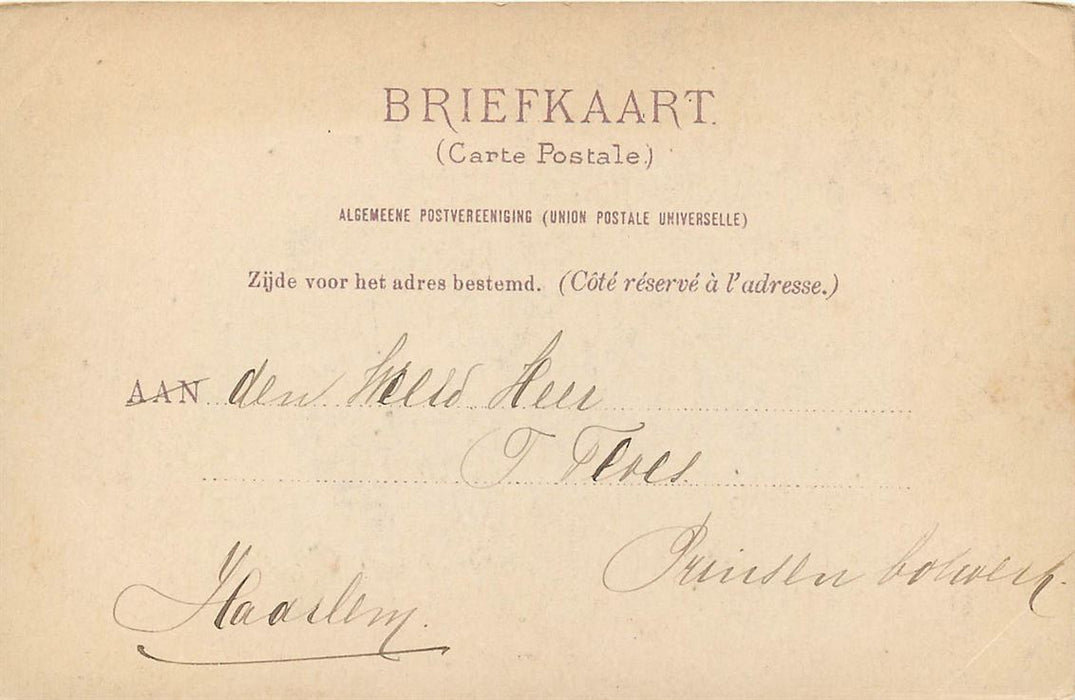 BRIEFKAART.
(Carte Postale.)
ALGEMEENE POSTVEREENIGING (UNION POSTALE UNIVERSELLE)
Zijde voor het adres bestemd. (Côté réservé à l'adresse.)
AAN den Heer
T
Prinsen bolwerk.
Haarlem.